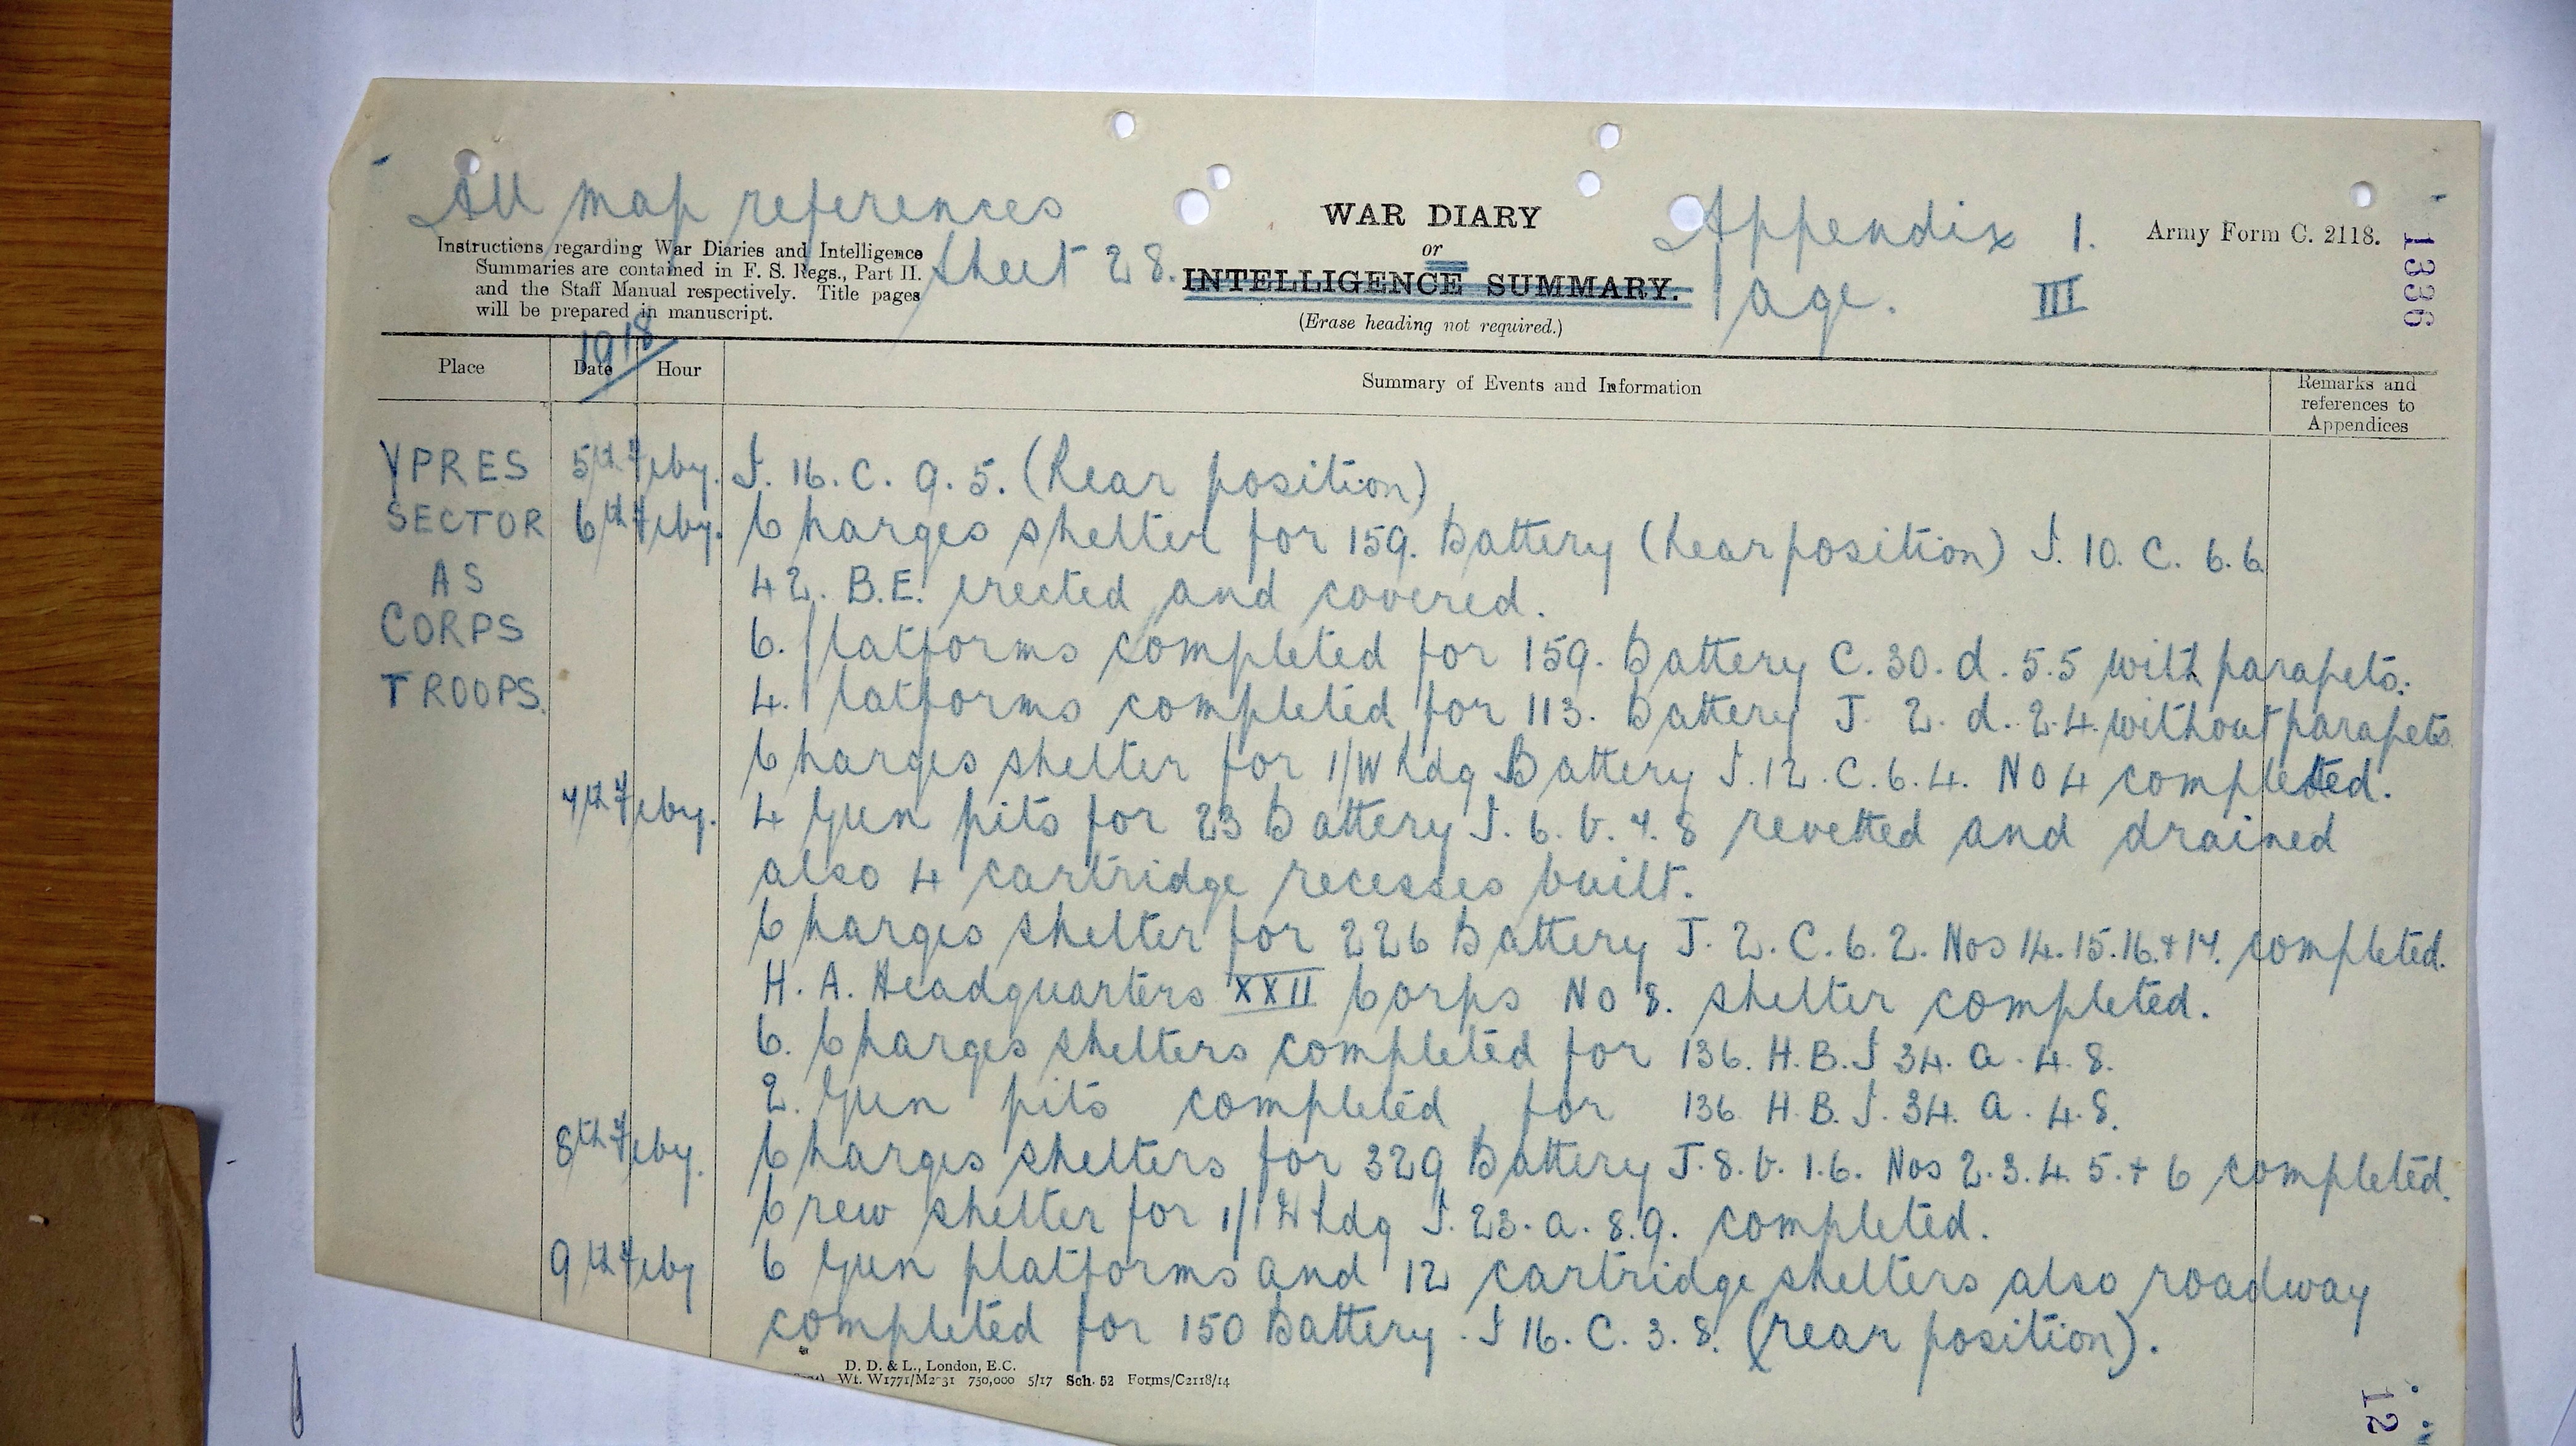 All map references
Sheet 28.
Instructions regarding War Diaries and Intelligence
Summaries are contained in F. S. Regs., Part II.
and the Staff Manual respectively. Title pages
will be prepared in manuscript.
WAR DIARY
or
INTELLIGENCE SUMMARY.
(Erase heading not required.)
Appendix 1.
Page. III
Army Form C. 2118.
1336
1918
Place Date Hour Summary of Events and Information Remarks and references to Appendices
YPRES 5th Feby. J. 16. C. 9. 5. (Rear position)
SECTOR 6th Feby. Charges shelter for 159. Battery (Rear position) J. 10. C. 6. 6.
AS 42. B.E. erected and covered.
CORPS 6. Platforms completed for 159. Battery C. 30. d. 5.5 with parapets.
TROOPS. 4. Platforms completed for 113. Battery J. 2. d. 2.4. without parapets
Charges shelter for 1/W Rdg Battery J. 12. C. 6. 4. No 4 completed.
7th Feby. 4 Gun pits for 23 Battery J. 6. b. 7. 8 revetted and drained
also 4 cartridge recesses built.
Charges shelter for 226 Battery J. 2. C. 6. 2. Nos 14. 15. 16. + 17. completed.
H. A. Headquarters XXII Corps No 8. shelter completed.
6. Charges shelters completed for 136. H. B. J 34. a. 4. 8.
2. Gun pits completed for 136 H. B. J. 34. a. 4. 8.
8th Feby. Charges shelters for 329 Battery J. 8. b. 1. 6. Nos 2. 3. 4. 5. + 6 completed.
Crew shelter for 1/1 W Rdg J. 23. a. 8. 9. completed.
9th Feby 6 Gun platforms and 12 cartridge shelters also roadway
completed for 150 Battery. J 16. C. 3. 8. (rear position).
D. D. & L., London, E.C.
Wt. W1771/M2031 750,000 5/17 Sch. 52 Forms/C2118/14
12